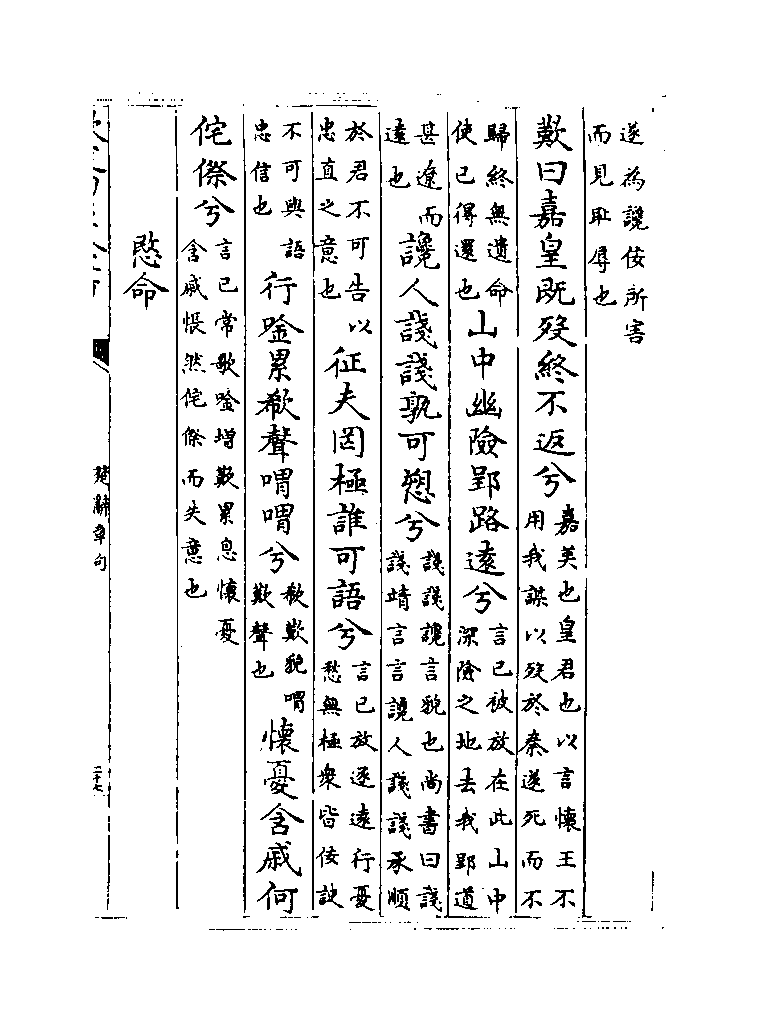 遂為讒佞所害
而見耻辱也
歎曰嘉皇既歿終不返兮嘉美也皇君也以言懷王不
用我謀以歿於秦遂死而不
歸終無遺命
使已得還也山中幽險郢路遠兮言已被放在此山中
深險之地去我郢道
甚遼而
遠也讒人諓諓孰可愬兮諓諓讒言貌也尚書曰諓
諓靖言言讒人諓諓承順
於君不可告以
忠直之意也征夫罔極誰可語兮言已放逐遠行憂
愁無極衆皆佞諛
不可與語
忠信也行唫累欷聲喟喟兮欷歎貌喟
歎聲也懷憂含戚何
侘傺兮言已常歌唫增歎累息懷憂
含戚悵然侘傺而失意也
愍命
楚辭章句